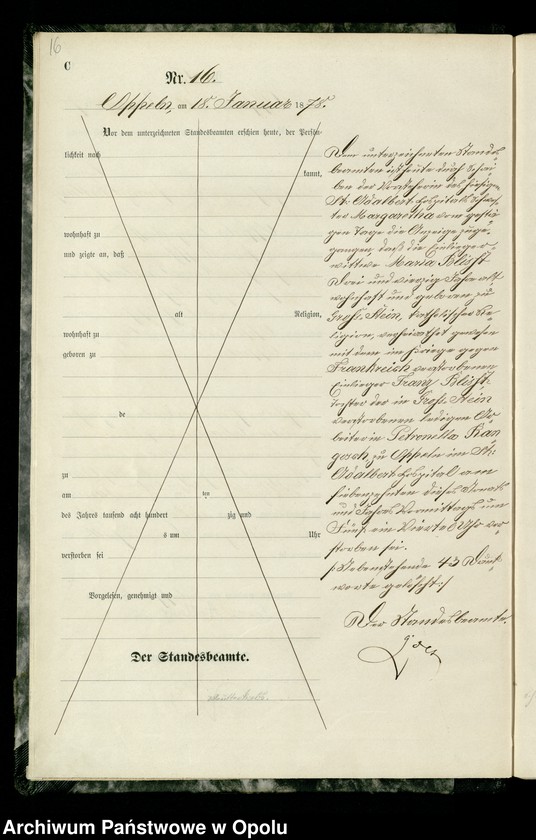 16
C
Nr. 16.
Oppeln, am 18. Januar 1878.
Vor dem unterzeichneten Standesbeamten erschien heute, der Persön-
lichkeit nach
kannt,
wohnhaft zu
und zeigte an, daß
alt Religion,
wohnhaft zu
geboren zu
de
zu
am ten
des Jahres tausend acht hundert zig und
s um Uhr
verstorben sei
Vorgelesen, genehmigt und
Der Standesbeamte.
Dem unterzeichneten Standes-
beamten ist heute durch Schrei-
ben der Vorsteherin des hiesigen
St. Adalbert Hospitals Schwes-
ter Margaretha vom gestri-
gen Tage die Anzeige zuge-
gangen, daß die Einlieger-
wittwe Maria Klißt
drei und vierzig Jahre alt
wohnhaft und geboren zu
Groß Stein, katholischer Re-
ligion, verheirathet gewesen
mit dem im Kriege gegen
Frankreich verstorbenen
Einlieger Franz Klißt
Tochter der in Groß Stein
verstorbenen ledigen Ar-
beiterin Petronella
zu Oppeln im St.
Adalbert Hospital am
siebenzehnten dieses Monats
und Jahres Vormittags um
Fünf ein Viertel Uhr ver-
storben sei.
Nebenstehende 43 Druck-
worte gelöscht
Der Standesbeamte.
Archiwum Państwowe w Opolu